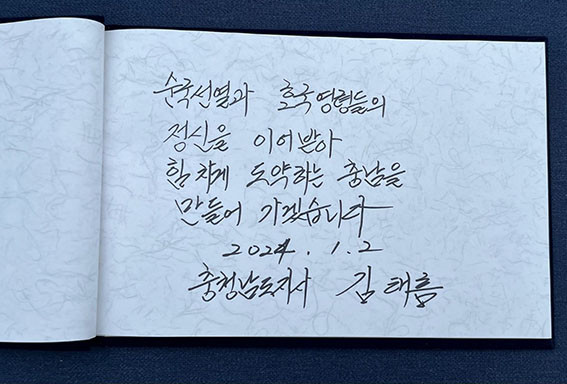 순국선열과 호국영령들의
정신을 이어받아
힘차게 도약하는 충남을
만들어 가겠습니다
2024. 1. 2
충청남도지사 김태흠